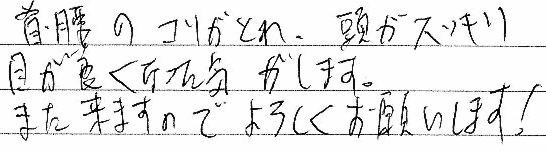 首・腰のコリがとれ、頭がスッキリ
目が良くなった気がします。
また来ますのでよろしくお願いします!